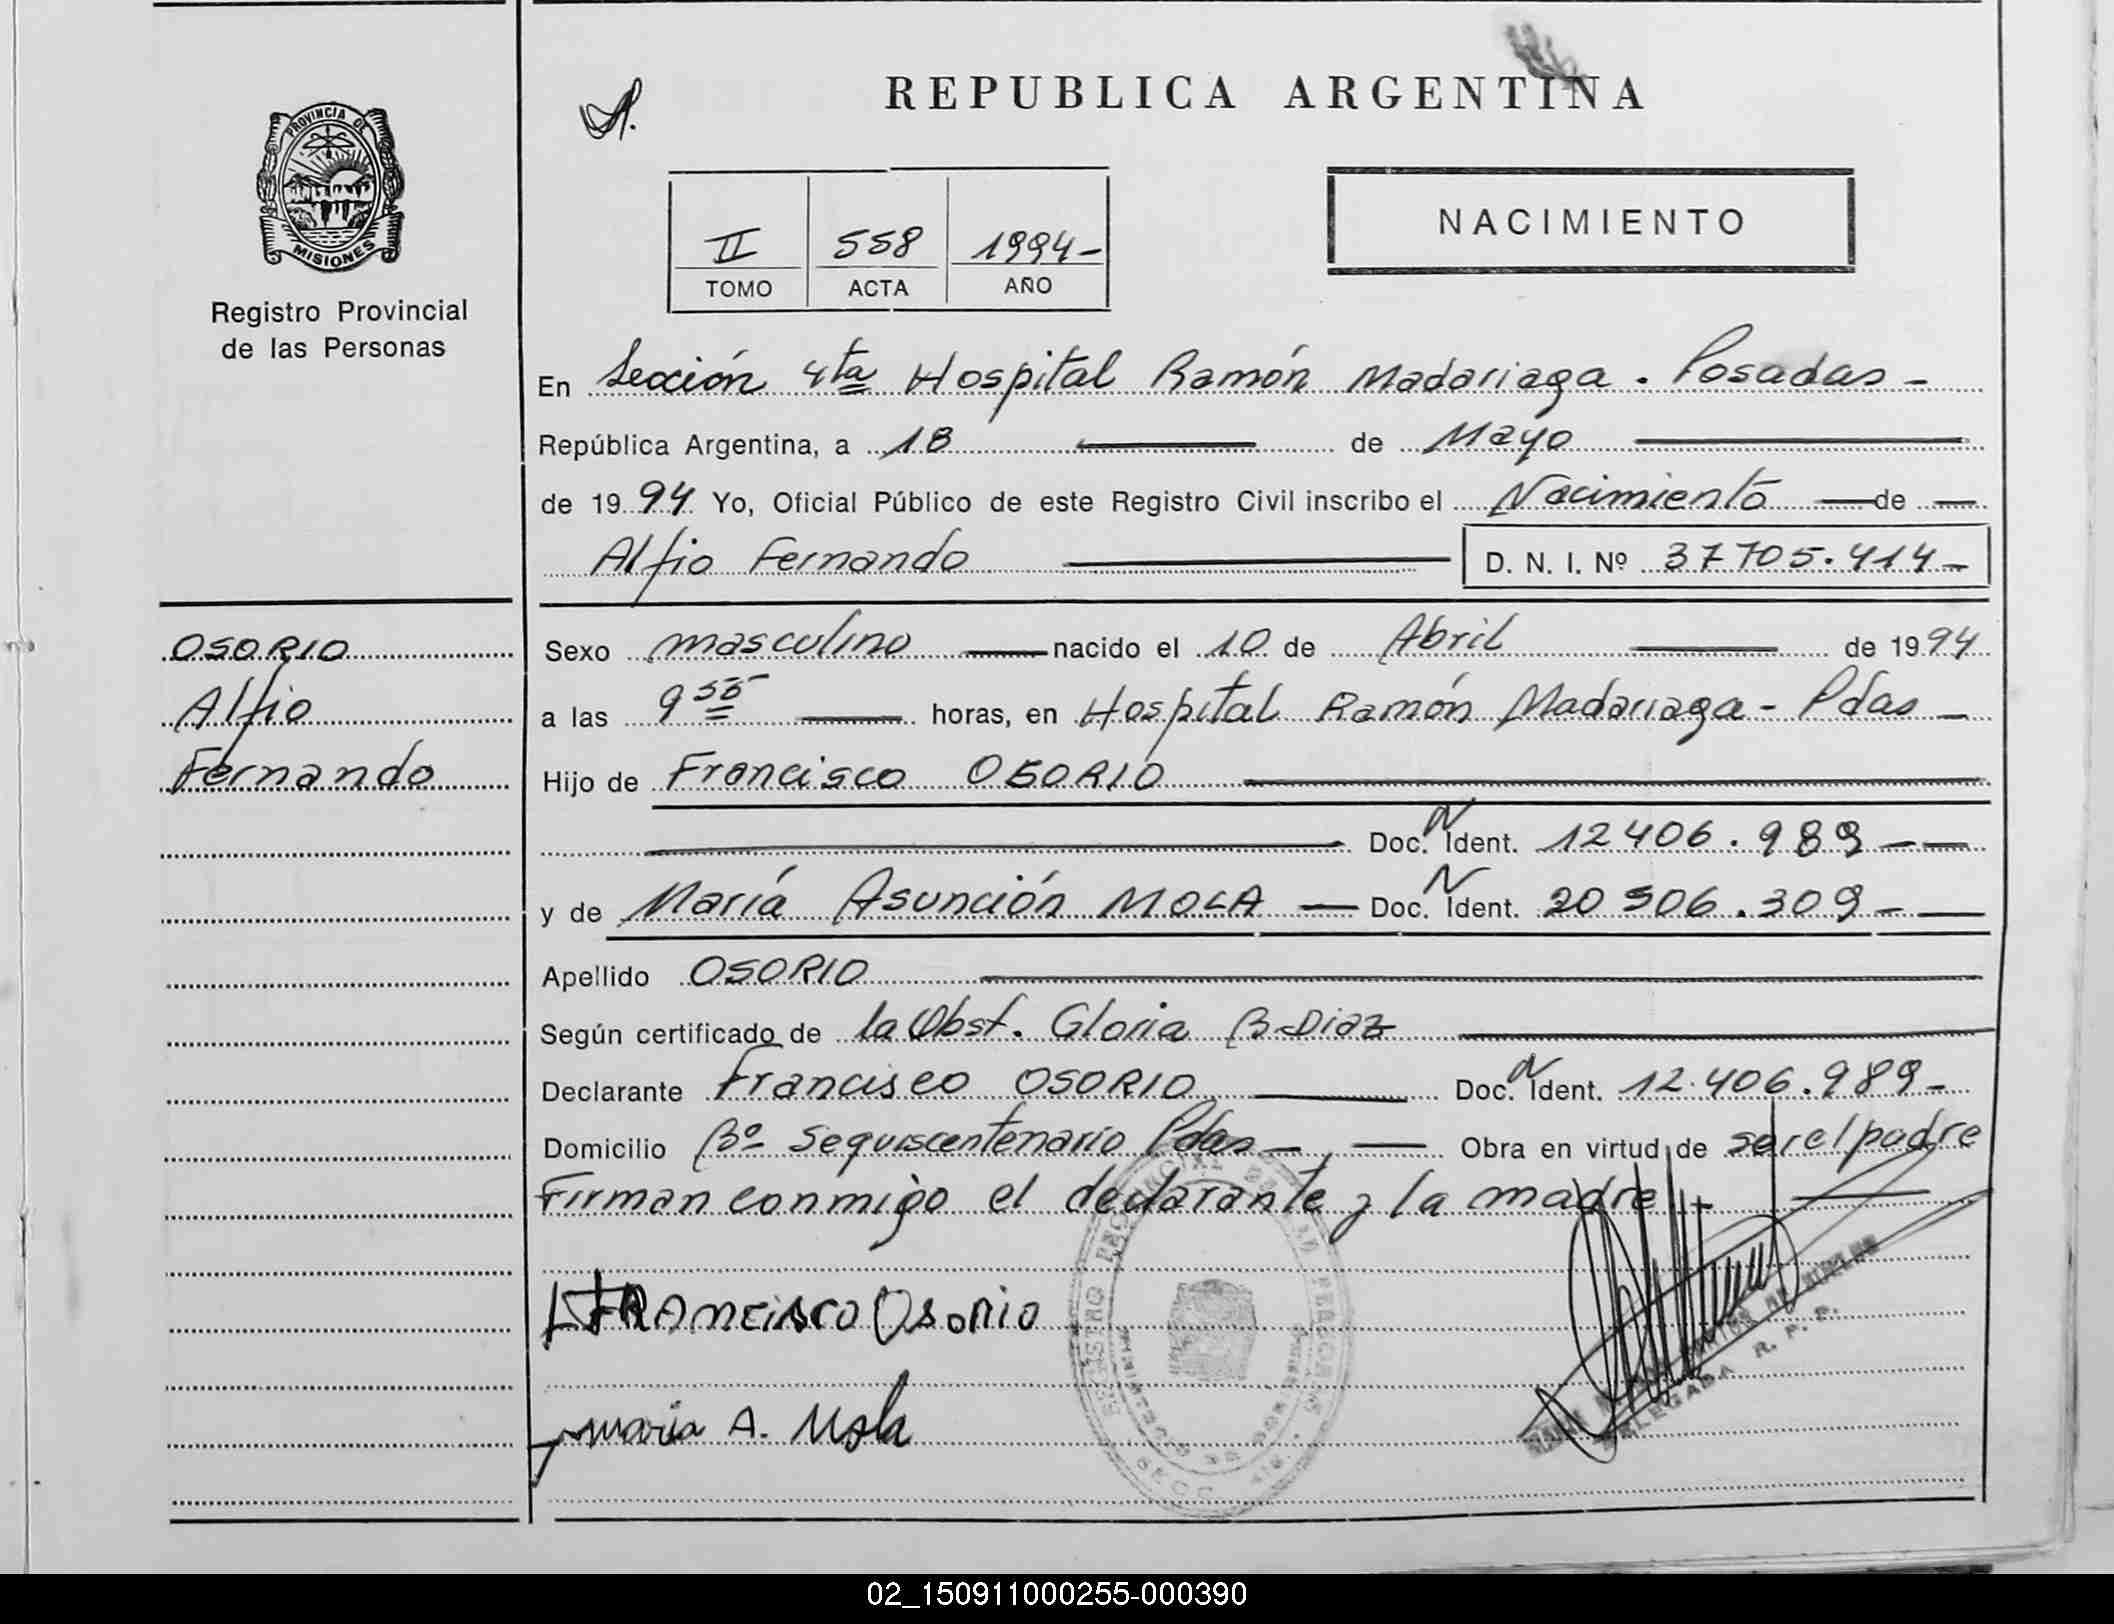 PROVINCIA DE
MISIONES
Registro Provincial
de las Personas
OSORIO
Alfio
Fernando
A.
REPUBLICA ARGENTINA
II 558 1994-
TOMO ACTA AÑO
NACIMIENTO
En Sección 4ta Hospital Ramón Madariaga. Posadas-
República Argentina, a 18 de Mayo
de 1994 Yo, Oficial Público de este Registro Civil inscribo el Nacimiento de
Alfio Fernando D. N. I. Nº 37705.414-
Sexo masculino nacido el 10 de Abril de 1994
a las 9 55 horas, en Hospital Ramón Madariaga - Pdas
Hijo de Francisco OSORIO
Doc. N Ident. 12406.989
y de María Asunción MOLA Doc. N Ident. 20 506.309-
Apellido OSORIO
Según certificado de la Obst. Gloria B. Diaz
Declarante Francisco OSORIO Doc. N Ident. 12.406.989-
Domicilio Bº Sequiscentenario Pdas Obra en virtud de ser el padre
Firman conmigo el declarante y la madre
FRAncisco Osorio
maria A. Mola
DELEGADA R. P. P.
02_150911000255-000390